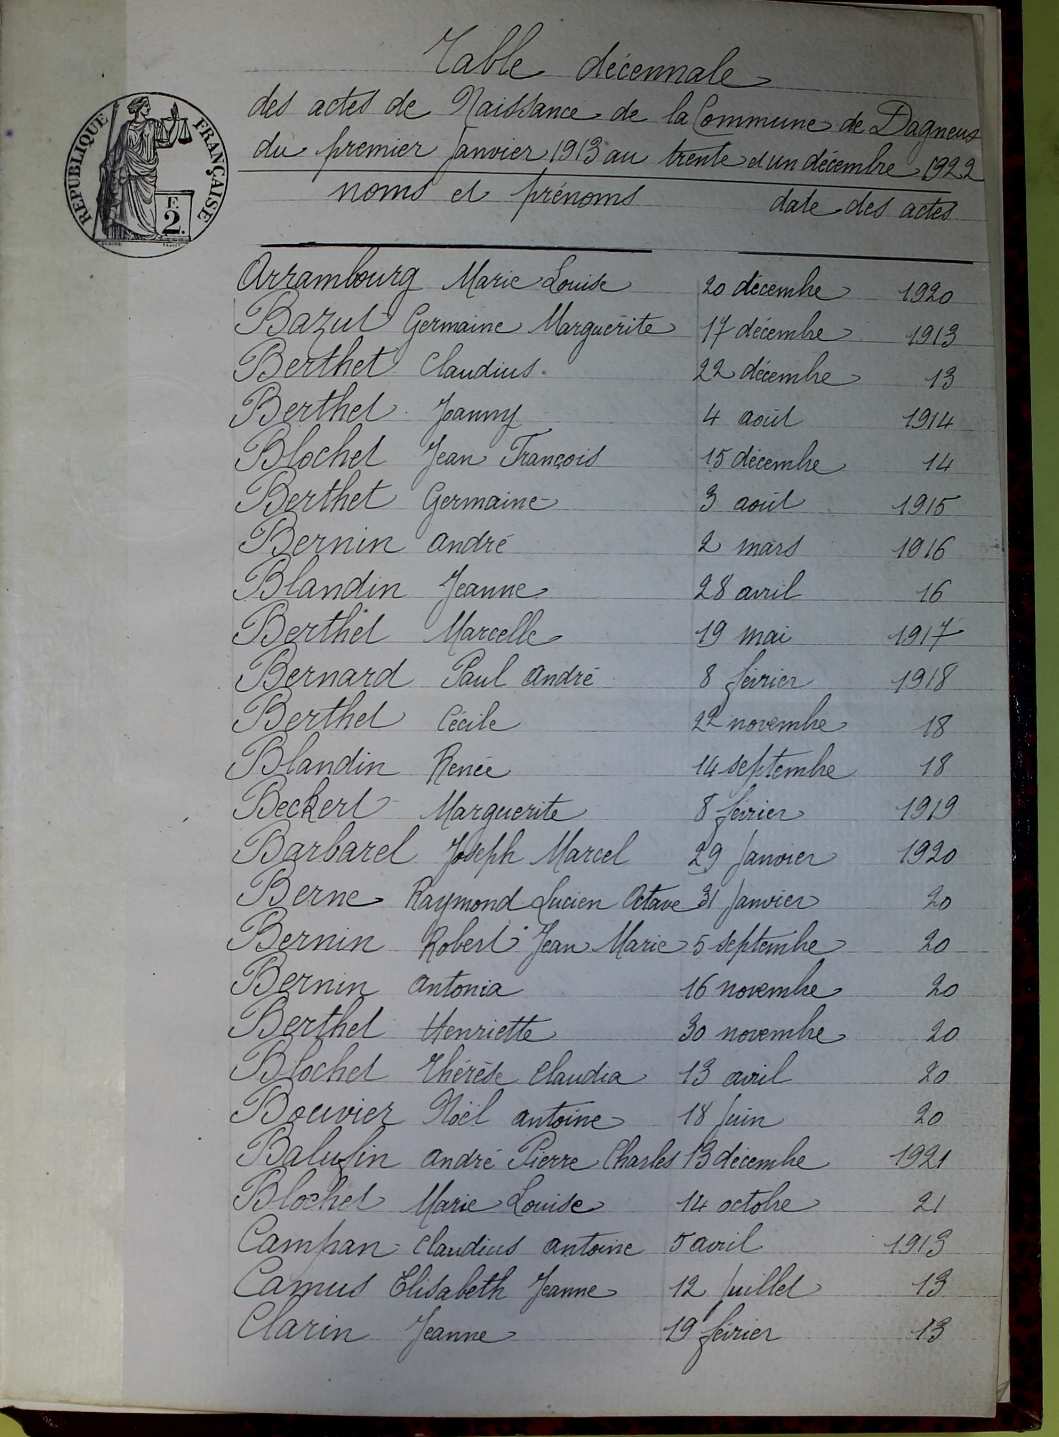 RÉPUBLIQUE FRANÇAISE
F.
2.
Table décennale
des actes de Naissance de la Commune de Dagneux
du premier Janvier 1913 au trente et un décembre 1922
noms et prénoms date des actes
Arrambourg Marie Louise 20 décembre 1920
Bazut Germaine Marguerite 17 décembre 1913
Berthet Claudius 22 décembre 13
Berthet Joanny 4 août 1914
Blochet Jean François 15 décembre 14
Berthet Germaine 3 août 1915
Bernin André 2 mars 1916
Blandin Jeanne 28 avril 16
Berthet Marcelle 19 mai 1917
Bernard Paul André 8 février 1918
Berthet Cécile 22 novembre 18
Blandin Renée 14 septembre 18
Beckert Marguerite 8 février 1919
Barbarel Joseph Marcel 29 Janvier 1920
Berne Raymond Lucien Octave 31 Janvier 20
Bernin Robert Jean Marie 5 septembre 20
Bernin Antonia 16 novembre 20
Berthet Henriette 30 novembre 20
Blochet Thérèse Claudia 13 avril 20
Bouvier Noël Antoine 18 Juin 20
Balufin André Pierre Charles 13 décembre 1921
Blochet Marie Louise 14 octobre 21
Campan Claudius Antoine 5 avril 1913
Camus Elisabeth Jeanne 12 Juillet 13
Clarin Jeanne 19 février 13